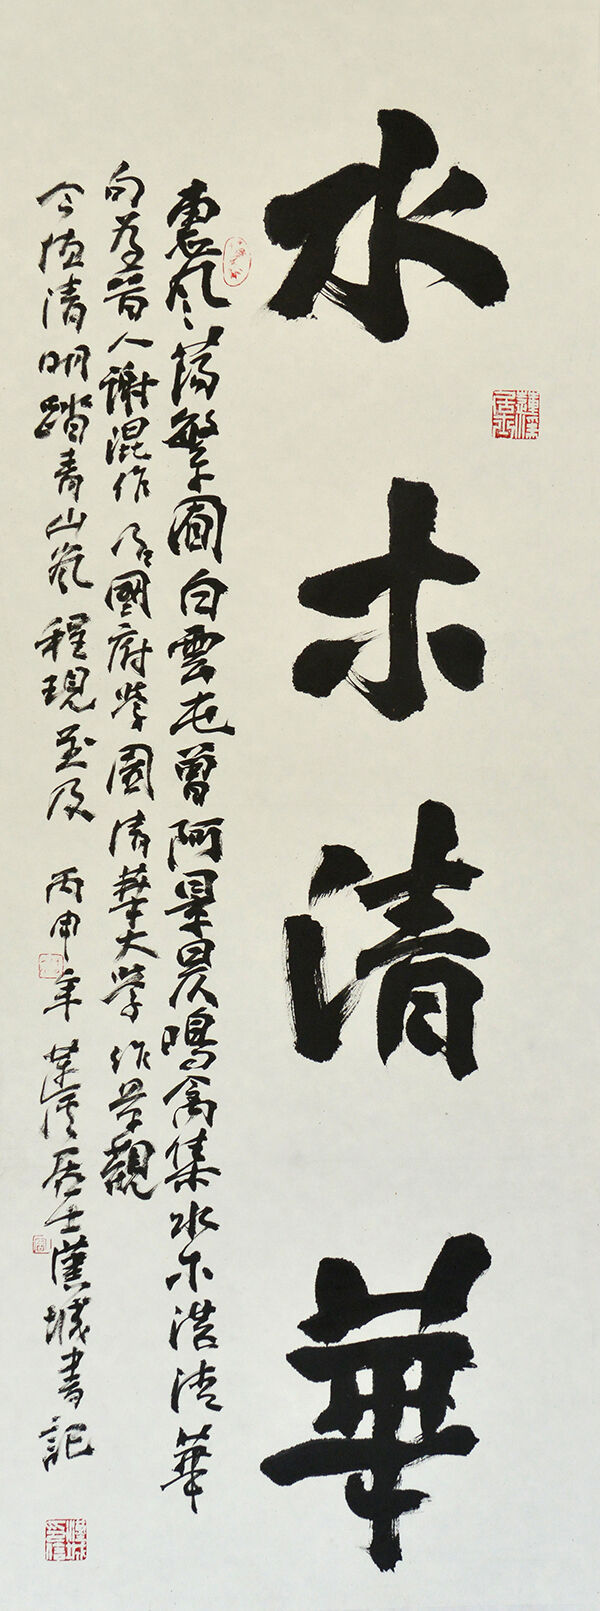 水木清華
惠风荡繁囿白雲屯曾阿景昃鳴禽集水木湛清華
句為晋人謝混作 后國府學園清華大學作景觀
今值清明踏青山岚程現並及 丙申年 蓮溪居士漢城書記